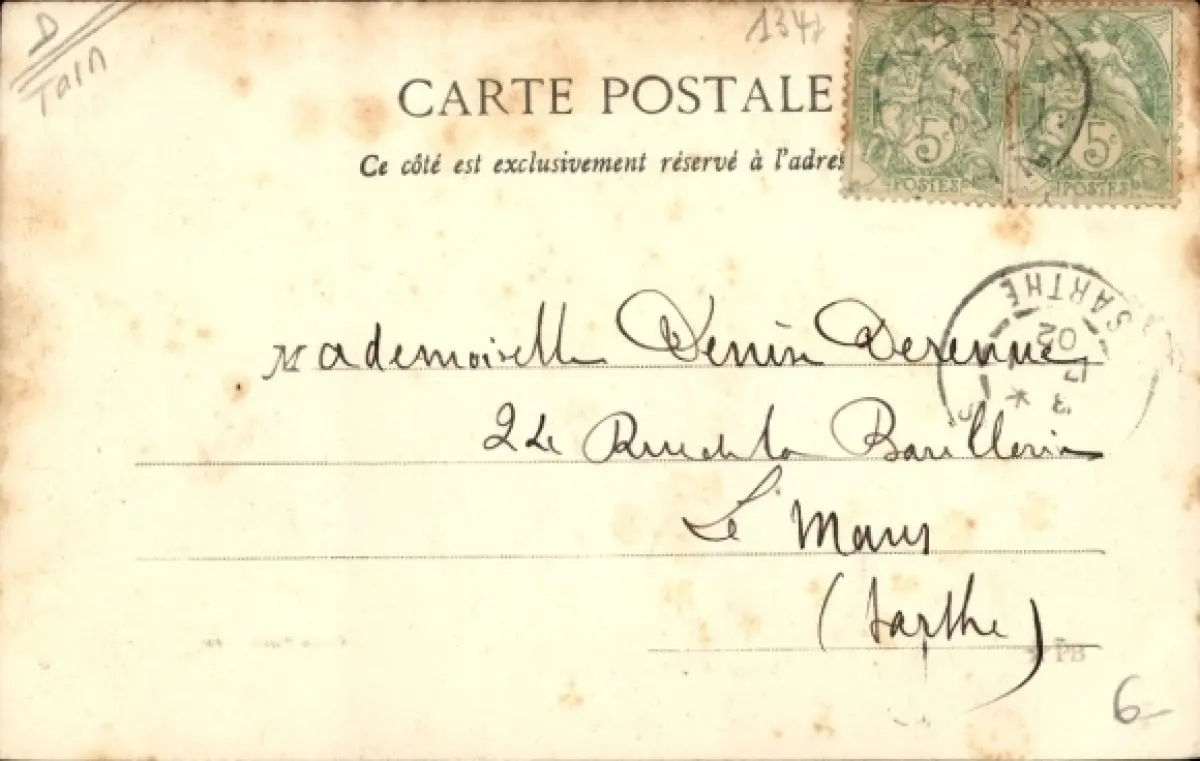 D
Tain
1347
CARTE POSTALE
Ce côté est exclusivement réservé à l'adres
5
POSTES
5
POSTES
SARTHE
02
Mademoiselle Denise
Rue de la Barillerie
Le Mans
(Sarthe)
PB
6